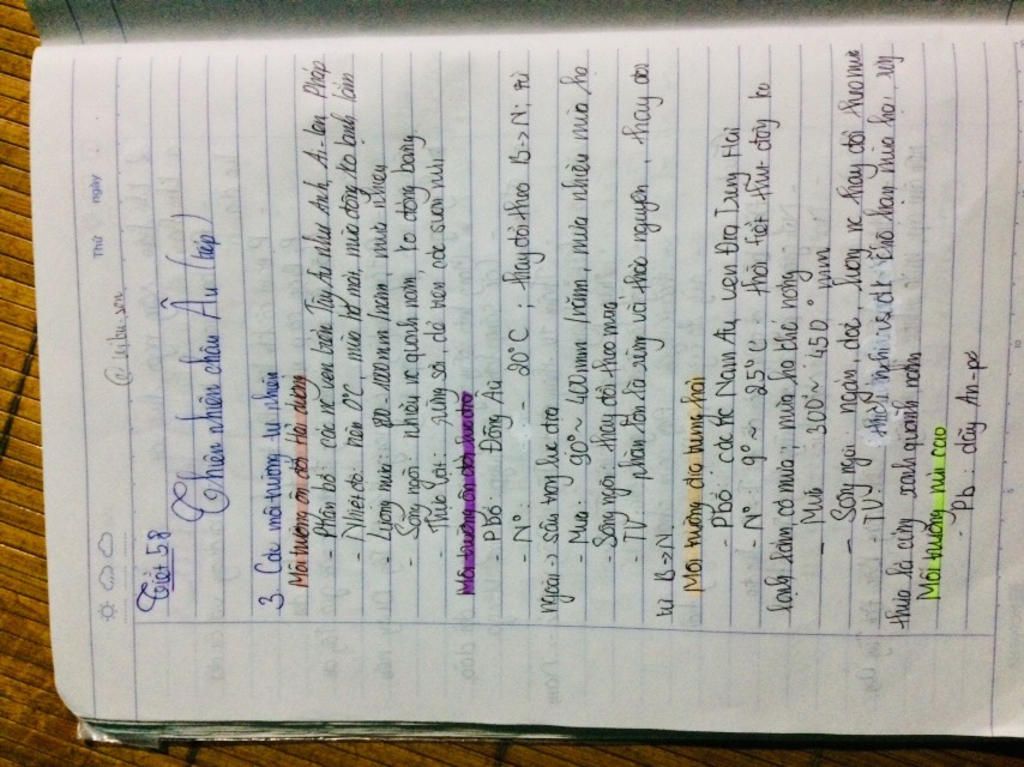 Thứ ngày
@tiệt 58
Tiết 58
Thiên nhiên châu Âu (tiếp)
3. Các môi trường tự nhiên
Môi trường ôn đới Hải dương
- Phân bố: các nc ven biển Tây Âu như Anh, Ai-len Pháp
- Nhiệt độ: trên 0°C, mùa hạ mát, mùa đông ko lạnh lắm
- Lượng mưa: 800-1000mm/năm, mưa nhiều
- Sông ngòi: nhiều nc quanh năm, ko đóng băng
- Thực vật: rừng sồi, dẻ trên các sườn núi
Môi trường ôn đới lục địa
- Pbố: Đông Âu
- N°: - 20°C ; thay đổi theo B->N; từ
ngoài -> sâu trong lục địa
- Mưa: 90° ~ 400mm/năm, mưa nhiều mùa hạ
- Sông ngòi: thay đổi theo mùa
- TV: phần lớn là rừng và thảo nguyên, thay đổi
từ B->N
Môi trường địa trung hải
- Pbố: các nc Nam Âu, ven Địa Trung Hải
- N°: 9° ~ 25°C: thời tiết thu - đông ko
lạnh lắm có mưa; mùa hạ khô nóng
- Mưa 300° ~ 450° mm
- Sông ngòi ngắn, dốc, lượng nc thay đổi theo mùa
- TV: thích nghi vs đk khô hạn mùa hạ, rừng
thưa lá cứng xanh quanh năm
Môi trường núi cao
- Pb: dãy An-pơ